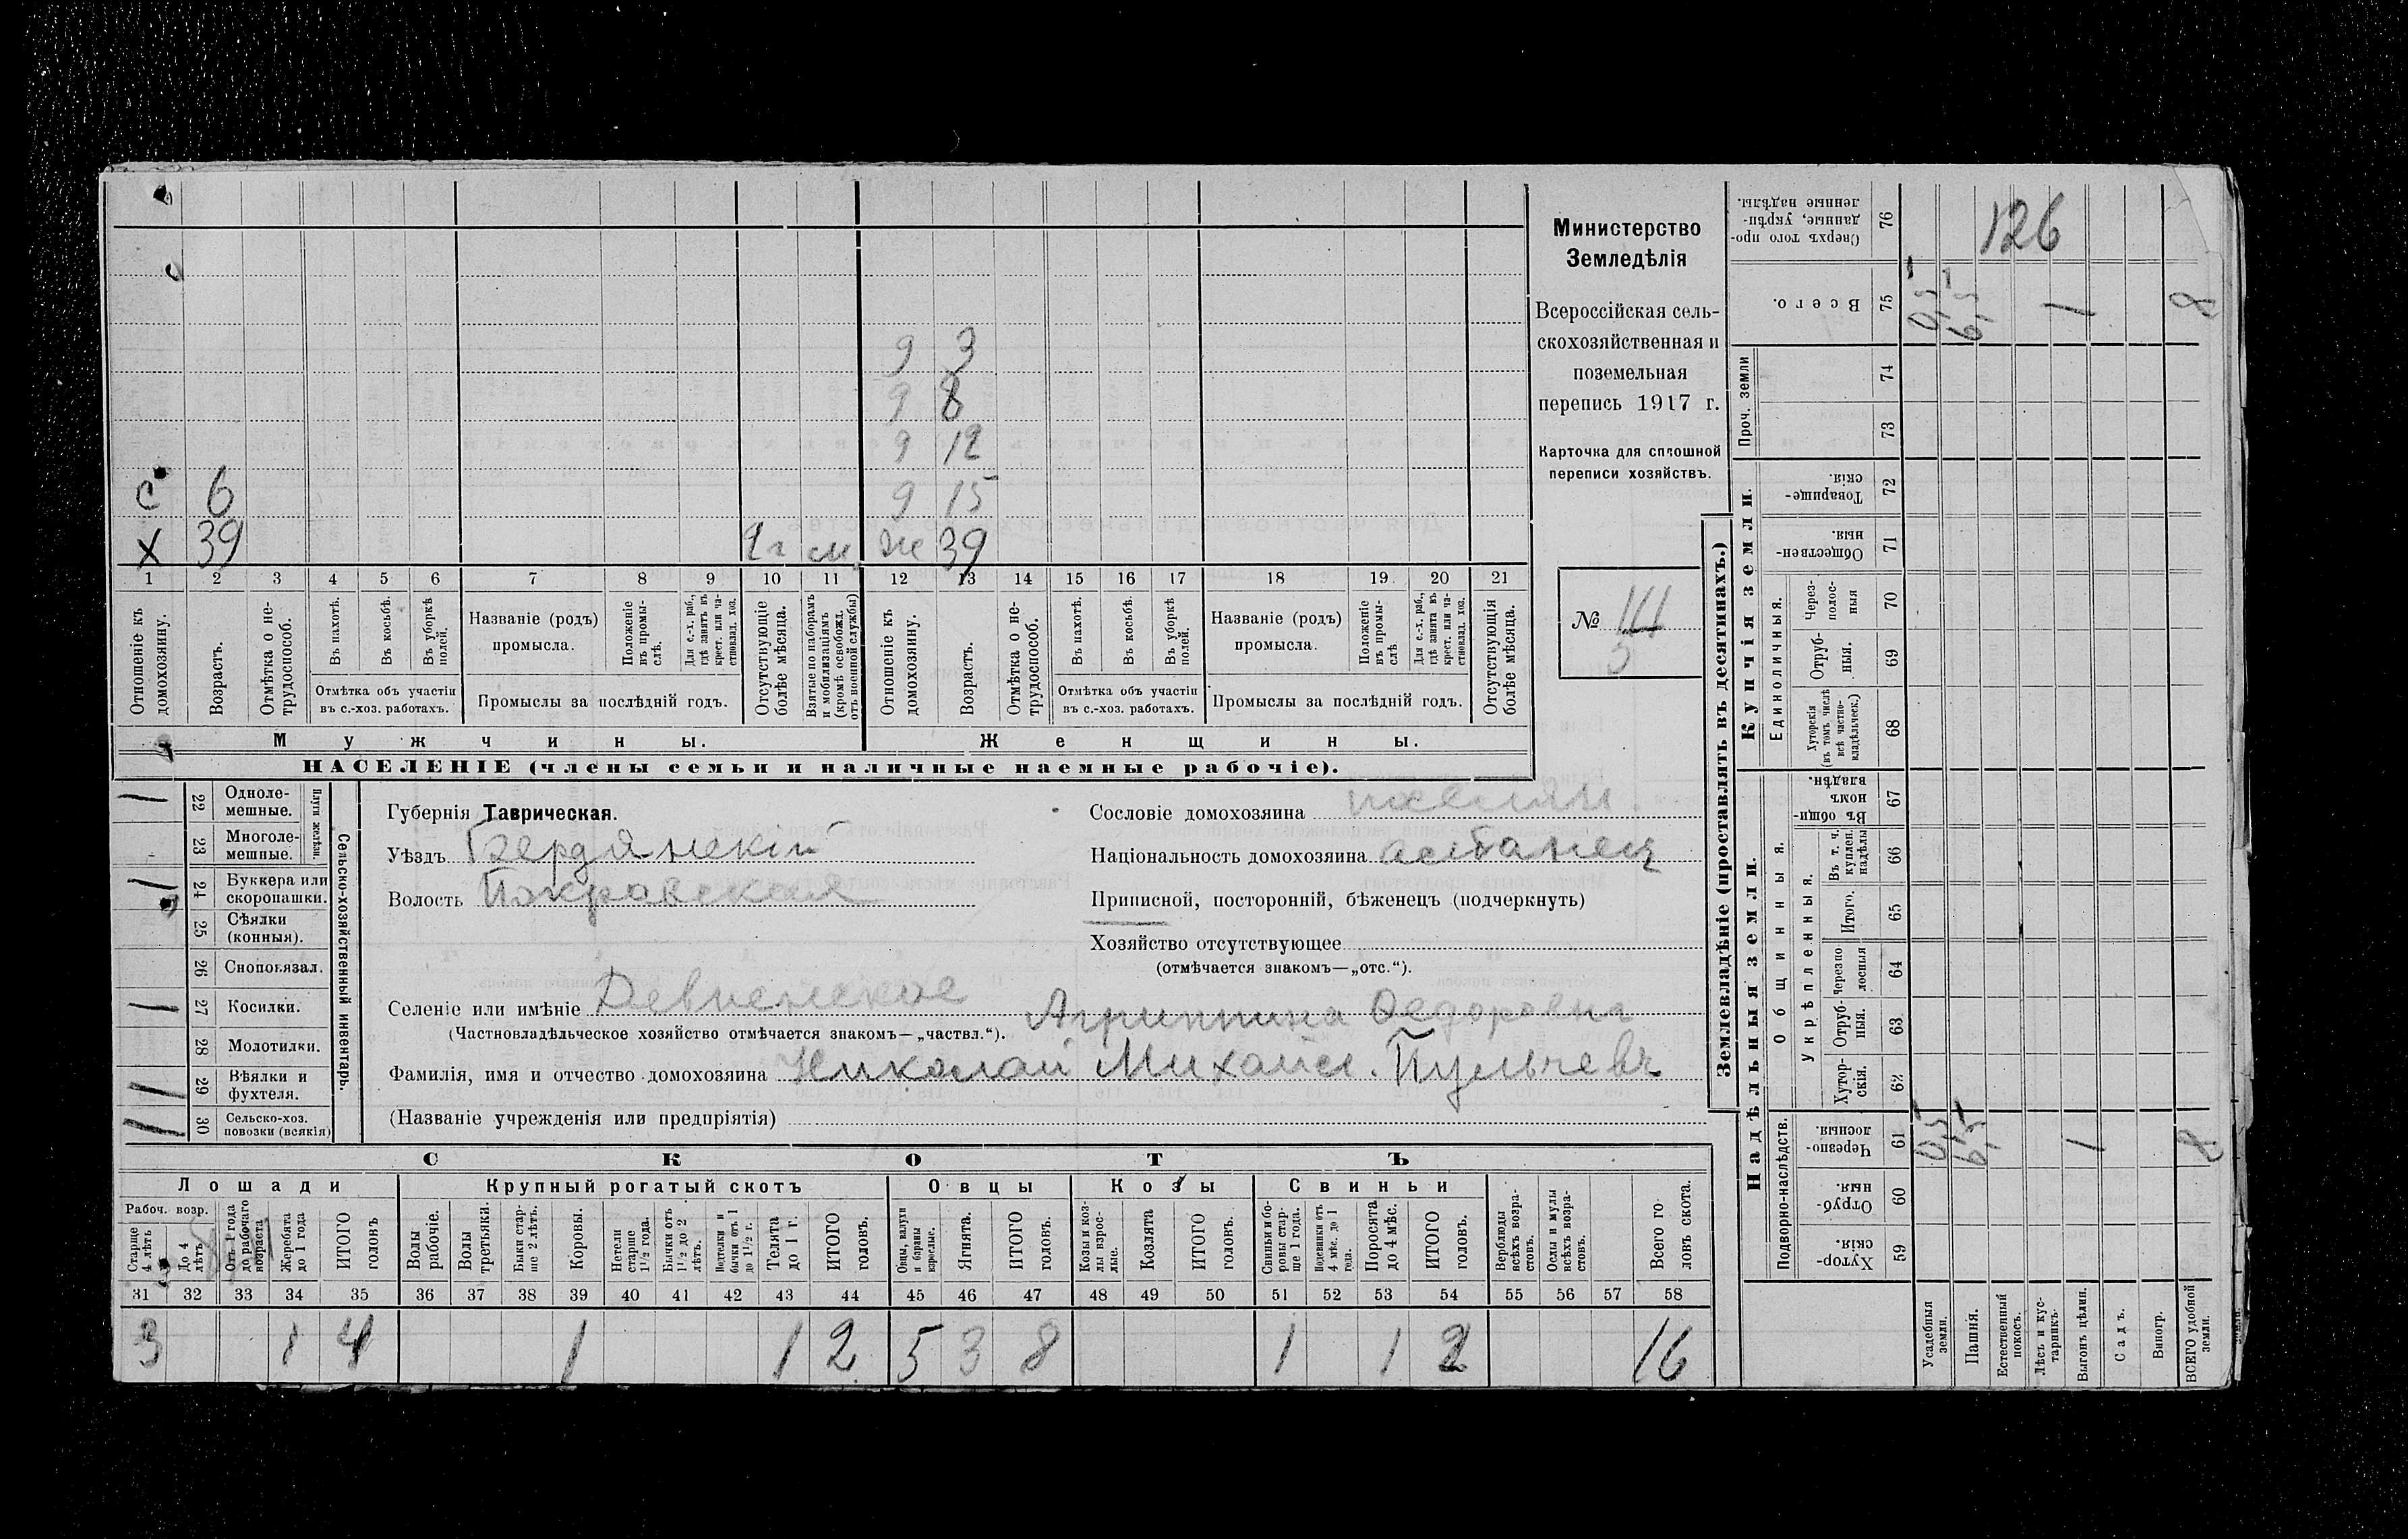 Министерство
Земледѣлія
Всероссійская сель-
скохозяйственная и
поземельная
перепись 1917 г.
Карточка для сплошной
переписи хозяйствъ.
№ 5
9 3
9 8
9 12
с 6 9 15
х 39 м. ж 39
1 2 3 4 5 6 7 8 9 10 11 12 13 14 15 16 17 18 19 20 21
Отношеніе къ домохозяину.
Возрастъ.
Отмѣтка о не-трудоспособ.
Въ пахотѣ.
Въ косьбѣ.
Въ уборкѣ полей.
Отмѣтка объ участіи въ с.-хоз. работахъ.
Названіе (родъ) промысла.
Положеніе въ промы-слѣ.
Для с.-х. раб., гдѣ занятъ въ крест. или ча-стновлад. хоз.
Промыслы за послѣдній годъ.
Отсутствующіе болѣе мѣсяца.
Взятые по наборамъ и мобилизаціямъ (кромѣ освобожд. отъ военной службы)
Отношеніе къ домохозяину.
Возрастъ.
Отмѣтка о не-трудоспособ.
Въ пахотѣ.
Въ косьбѣ.
Въ уборкѣ полей.
Отмѣтка объ участіи въ с.-хоз. работахъ.
Названіе (родъ) промысла.
Положеніе въ промы-слѣ.
Для с.-х. раб., гдѣ занята въ крест. или ча-стновлад. хоз.
Промыслы за послѣдній годъ.
Отсутствующія болѣе мѣсяца.
Мужчины. Женщины.
НАСЕЛЕНІЕ (члены семьи и наличные наемные рабочіе).
Сельско-хозяйственный инвентарь.
Плуги желѣзн.
22 Однолe-мешные.
23 Многоле-мешные.
24 Буккера или скоропашки.
25 Сѣялки (конныя).
26 Сноповязал.
27 Косилки.
28 Молотилки.
29 Вѣялки и фухтеля.
30 Сельско-хоз. повозки (всякія)
Губернія Таврическая.
Уѣздъ Бердянскій
Волость Покровская
Селеніе или имѣніе
(Частновладѣльческое хозяйство отмѣчается знакомъ—„частвл.“).
Сословіе домохозяина
Національность домохозяина
Приписной, посторонній, бѣженецъ (подчеркнуть)
Хозяйство отсутствующее
(отмѣчается знакомъ—„отс.“).
Агриппина Федоровна
Фамилія, имя и отчество домохозяина Николай Михайл. Пульчевъ
(Названіе учрежденія или предпріятія)
СКОТЪ
Лошади Крупный рогатый скотъ Овцы Козы Свиньи
Рабоч. возр.
Старше 4 лѣтъ
До 4 лѣтъ
Отъ 1 года до рабочаго возраста
Жеребята до 1 года
ИТОГО головъ
Волы рабочіе.
Волы третьяки.
Быки стар-ше 2 лѣтъ.
Коровы.
Нетели старше 1½ года.
Бычки отъ 1½ до 2 лѣтъ.
Нетелки и бычки отъ 1 до 1½ г.
Телята до 1 г.
ИТОГО головъ.
Овцы, валухи и бараны взрослые.
Ягнята.
ИТОГО головъ.
Козы и коз-лы взрос-лые.
Козлята
ИТОГО головъ.
Свиньи и бо-ровы стар-ше 1 года.
Подсвинки отъ 4 мѣс. до 1 года.
Поросята до 4 мѣс.
ИТОГО головъ.
Верблюды всѣхъ возра-стовъ.
Ослы и мулы всѣхъ возра-стовъ.
Всего го-ловъ скота.
31 32 33 34 35 36 37 38 39 40 41 42 43 44 45 46 47 48 49 50 51 52 53 54 55 56 57 58
3 1 4 1 1 2 5 3 8 1 1 2 16
Землевладѣніе (проставлять въ десятинахъ.)
Купчія земли.
Надѣльныя земли.
Проч. земли
Единоличныя.
Общинныя.
Укрѣпленныя.
Подворно-наслѣдств.
76 Сверхъ того про-данные, укрѣп-ленные надѣлы. 126
75 Всего. 0,5 6,5 1 8
74
73
72 Товарище-скія.
71 Обществен-ныя.
70 Через-полос-ныя
69 Отруб-ныя.
68 Хуторскія (въ томъ числѣ всѣ частно-владѣльческ.)
67 Въ общин-номъ владѣн.
66 Въ т. ч. куплен. надѣлы
65 Итого.
64 Черезпо-лосныя
63 Отруб-ныя.
62 Хутор-скія.
61 Черезпо-лосныя. 0,5 6,5 1 8
60 Отруб-ныя.
59 Хутор-скія.
Усадебныя земли.
Пашня.
Естественный покосъ.
Лѣсъ и кус-тарникъ.
Выгонъ цѣлин.
Садъ.
Виногр.
ВСЕГО удобной земли.